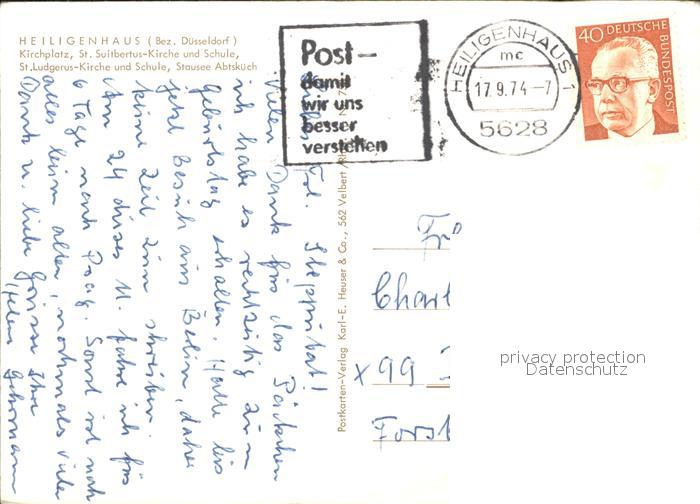 HEILIGENHAUS (Bez. Düsseldorf)
Kirchplatz, St. Suitbertus-Kirche und Schule,
St. Ludgerus-Kirche und Schule, Stausee Abtsküch
Post–
damit
wir uns
besser
verstehen
HEILIGENHAUS 1
mc
17.9.74–7
5628
40 DEUTSCHE
BUNDESPOST
Frl. Steppuhat!
Vielen Dank für das Päckchen
ich habe es rechtzeitig zum
Geburtstag erhalten. Hatte bis
jetzt Besuch aus Berlin, daher
keine Zeit zum schreiben.
Am 24 dieses M. fahre ich für
6 Tage nach Prag. Sonst ist noch
alles beim alten, nochmals vielen
Dank u. liebe Grüsse Ihre
Postkarten-Verlag Karl-E. Heuser & Co., 562 Velbert
Fr
Charl
x 99
Forst
privacy protection
Datenschutz